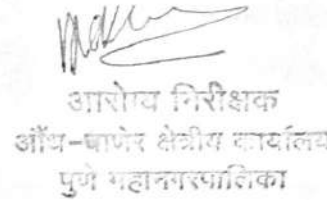 आरोग्य निरीक्षक
औंध-बाणेर क्षेत्रीय कार्यालय
पुणे महानगरपालिका